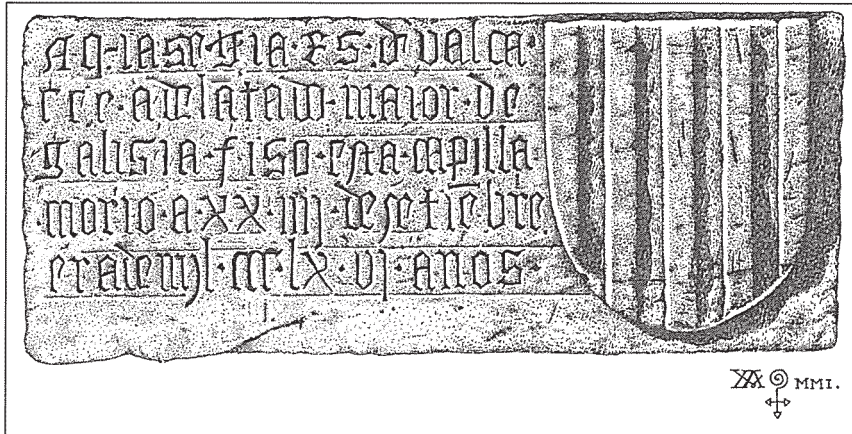 Aq·iase gia· ·d valca·
rce·adelatado·maior·de
galisia·fiso· capilla
morio·a·xx·iiij·de setiēbre
era de myl·ccc·lx·vj·anos·
MMI.